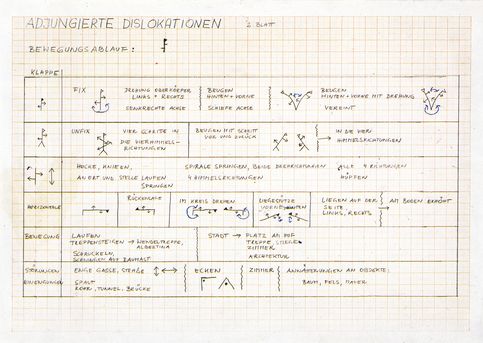 ADJUNGIERTE DISLOKATIONEN 2. BLATT
BEWEGUNGSABLAUF:
KLAPPE
FIX
DREHUNG OBERKÖRPER
LINKS + RECHTS
SENKRECHTE ACHSE
BEUGEN
HINTEN + VORNE
SCHIEFE ACHSE
BEUGEN
HINTEN + VORNE MIT DREHUNG
VEREINT
UNFIX
VIER SCHRITTE IN
DIE VIER HIMMELS-
RICHTUNGEN
BEUGEN MIT SCHRITT
VOR UND ZURÜCK
IN DIE VIER
HIMMELSRICHTUNGEN
HOCKE, KNIEEN,
AN ORT UND STELLE LAUFEN
SPRINGEN
SPIRALE SPRINGEN, BEIDE DREHRICHTUNGEN
4 HIMMELSRICHTUNGEN
ALLE 4 RICHTUNGEN
HÜPFEN
HORIZONTALE
RÜCKENLAGE
IM KREIS DREHEN
LIEGESTÜTZE
VORNE HINTEN
LIEGEN AUF DER
SEITE
LINKS, RECHTS
AM BODEN ERHÖHT
BEWEGUNG
LAUFEN
TREPPENSTEIGEN → WENDELTREPPE,
ALBERTINA
SCHAUKELN
STADT → PLATZ AM HOF
TREPPE, STIEGE
ZIMMER
ARCHITEKTUR
STÖRUNGEN
EINENGUNGEN
ENGE GASSE, STRAßE
SPALT
ROHR, TUNNEL, BRÜCKE
ECKEN
ZIMMER
ANNÄHERUNGEN AN OBJEKTE,
BAUM, FELS, MAUER